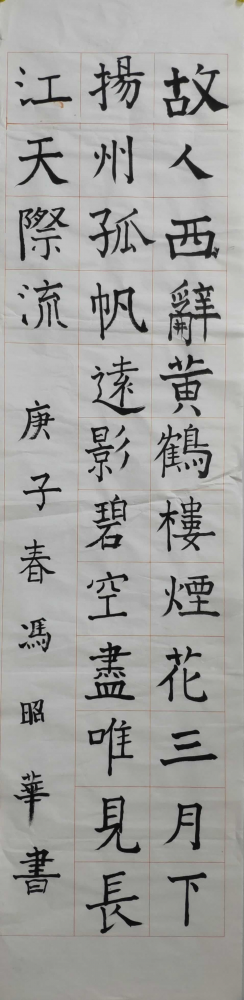 故人西辭黃鶴樓煙花三月下
揚州孤帆遠影碧空盡唯見長
江天際流
庚子春馮昭華書